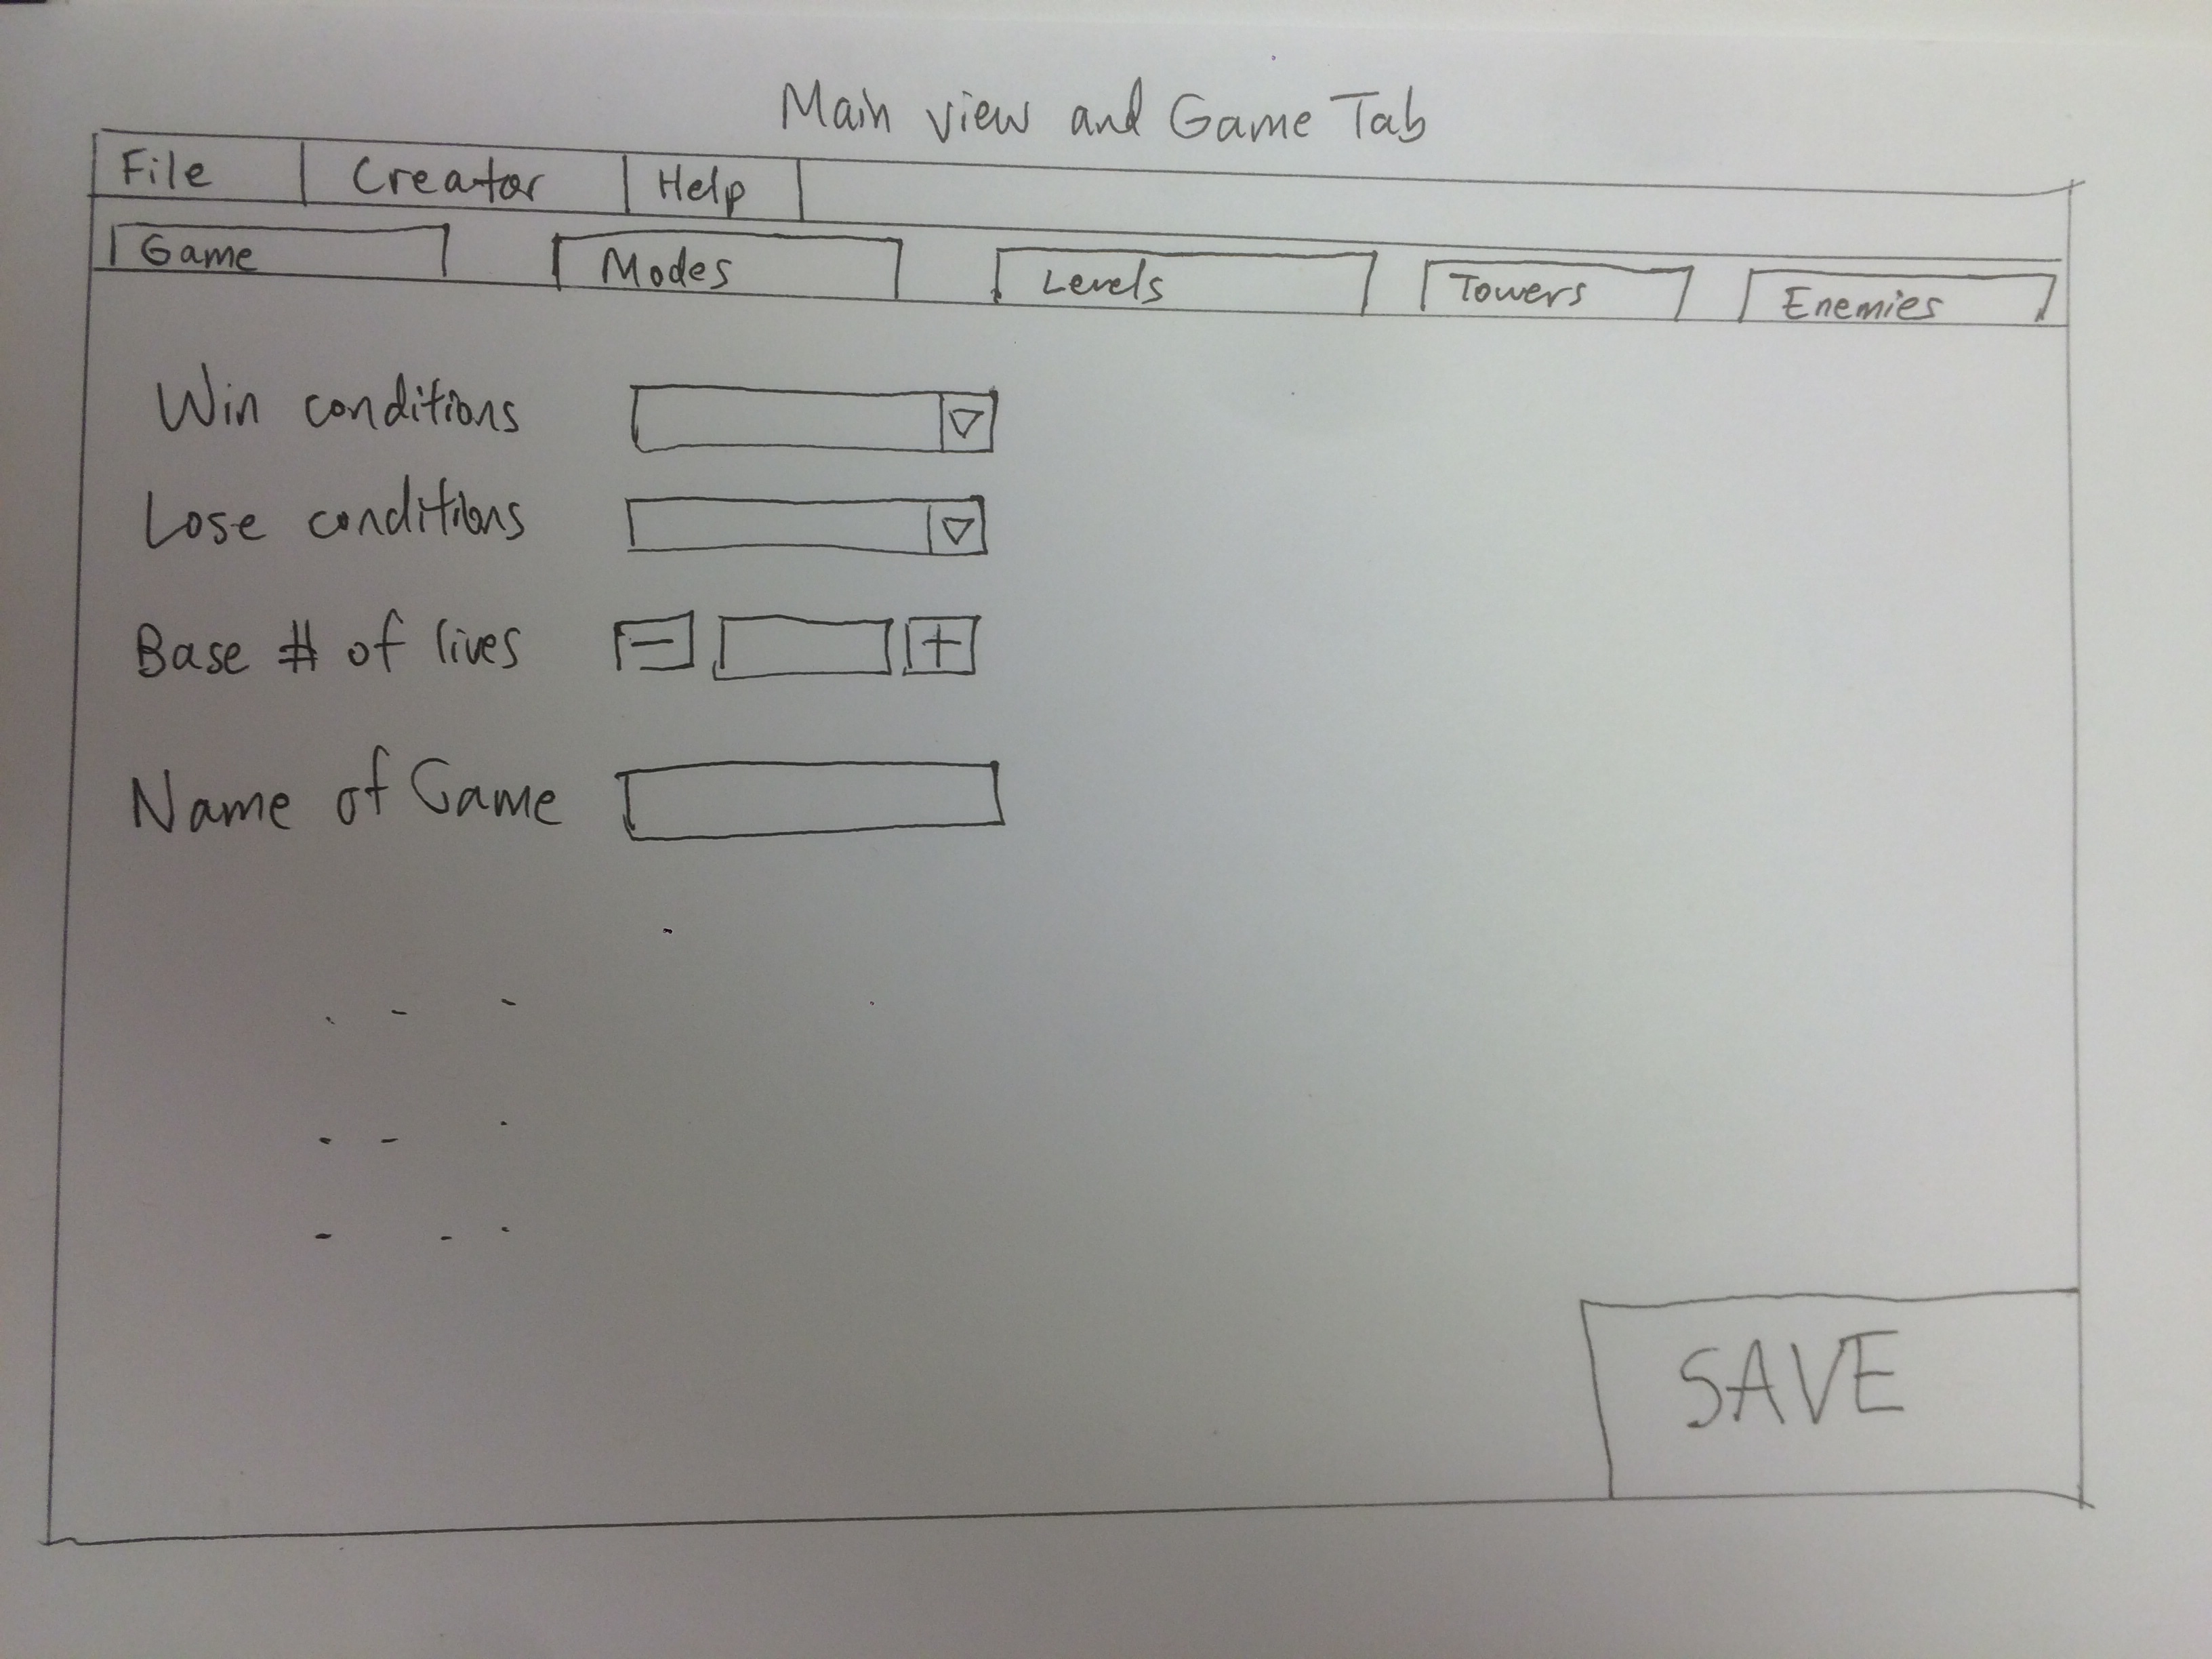 Main view and Game Tab
File Creator Help
Game Modes Levels Towers Enemies
Win conditions
Lose conditions
Base # of lives - +
Name of Game
SAVE